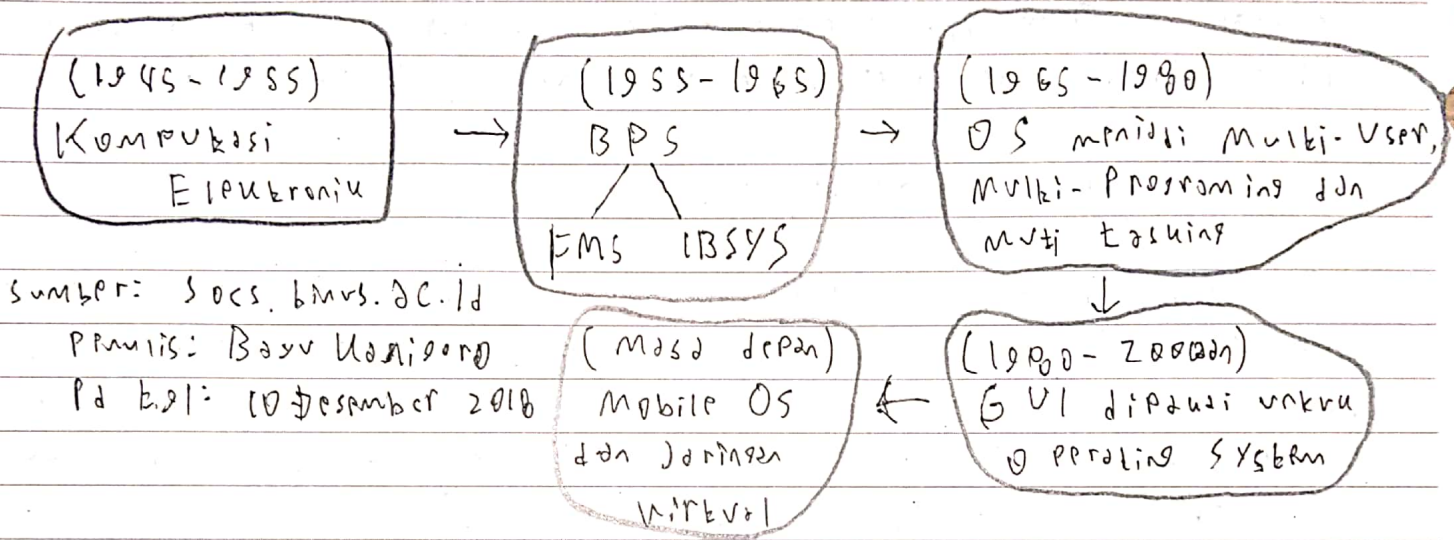 (1945-1955)
Komputasi
Elektronik
(1955-1965)
BPS
FMS IBSYS
(1965-1980)
OS menjadi Multi-User,
Multi-Programing dan
Multi tasking
(1980-2000an)
GUI dipakai untuk
operating system
(Masa depan)
Mobile OS
dan Jaringan
Virtual
sumber: socs.binus.ac.id
Penulis: Bayu Kanigoro
Pd tgl: 10 Desember 2018